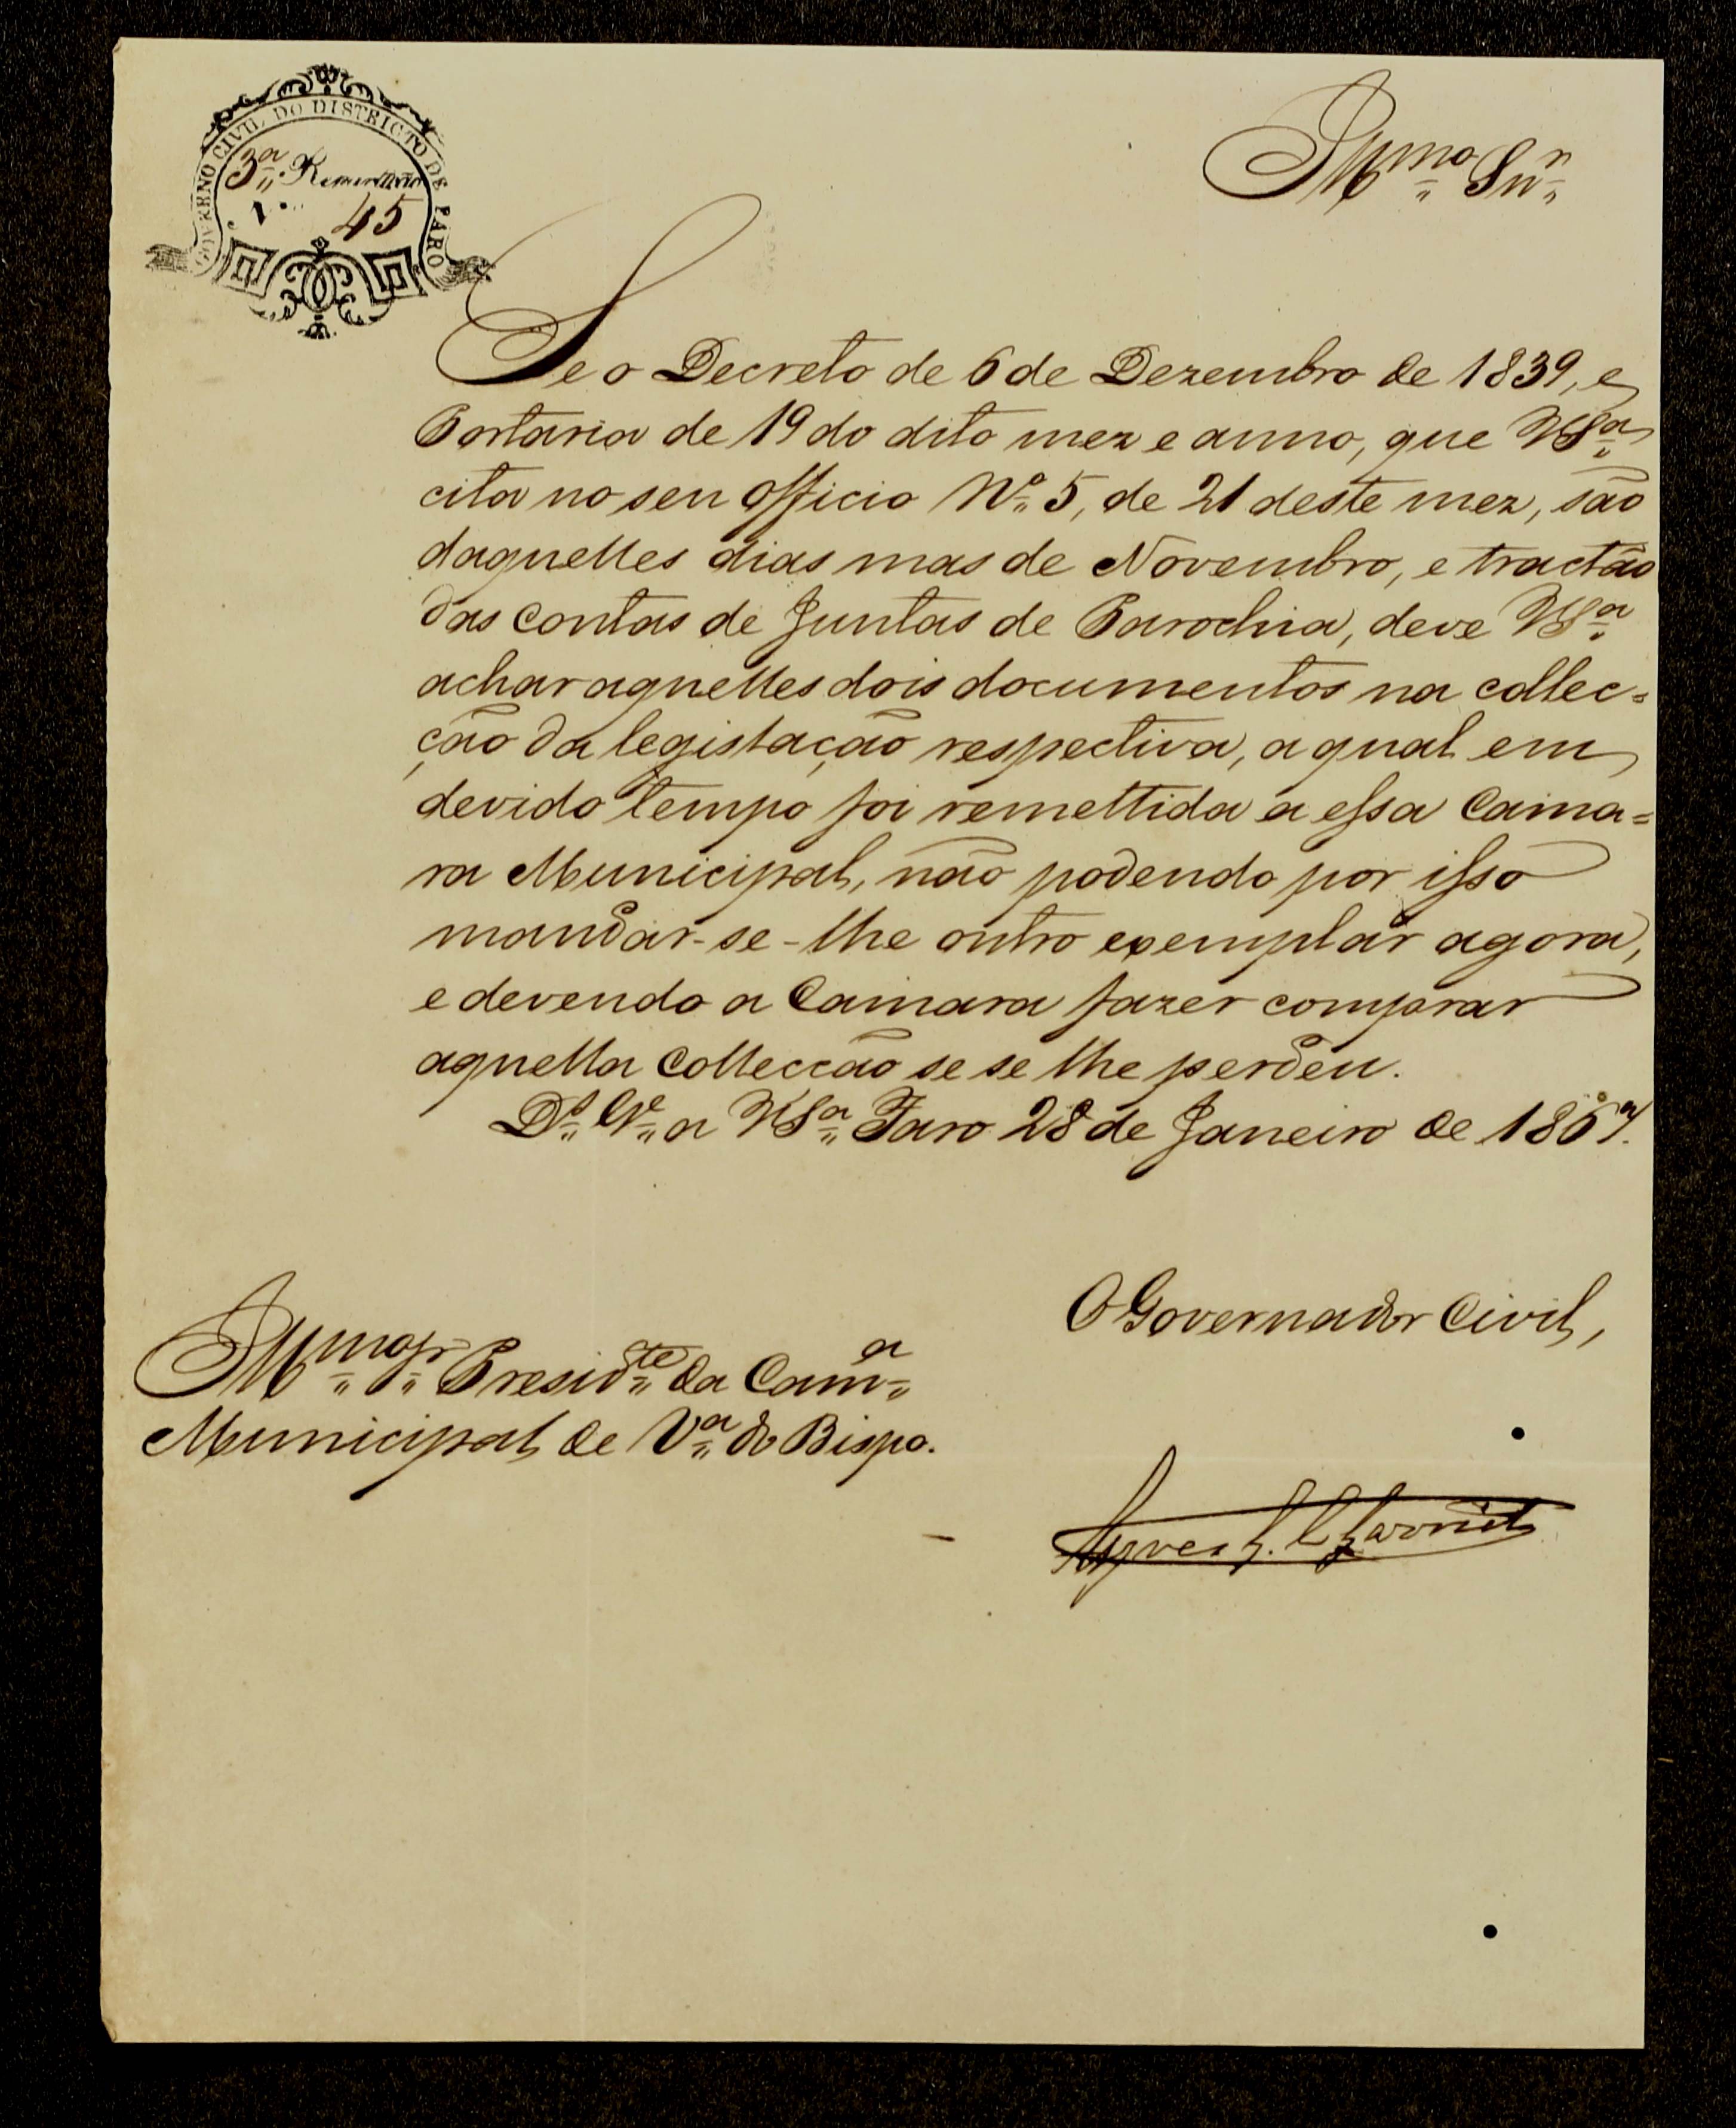 GOVERNO CIVIL DO DISTRICTO DE FARO
3ª Repartição
Nº 45
Illmo Snr
Se o Decreto de 6 de Dezembro de 1839, e
Portaria de 19 do dito mez e anno, que VSª
cita no seu officio Nº 5, de 21 deste mez, são
daquelles dias mas de Novembro, e tractão
das contas de Juntas de Parochia, deve VSª
achar aquelles dois documentos na collec=
ção da legislação respectiva, a qual em
devido tempo foi remettida a essa Cama=
ra Municipal, não podendo por isso
mandar-se-lhe outro exemplar agora,
e devendo a Camara fazer comprar
aquella Collecção se se lhe perdeu.
Ds Gde a VSª Faro 28 de Janeiro de 1867.
O Governador Civil,
Illmo Sr Preside da Camª
Municipal de Vª do Bispo.